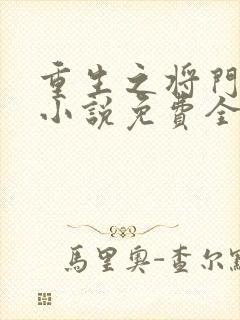 重生之将门
小説免費全
馬里奥-查尔